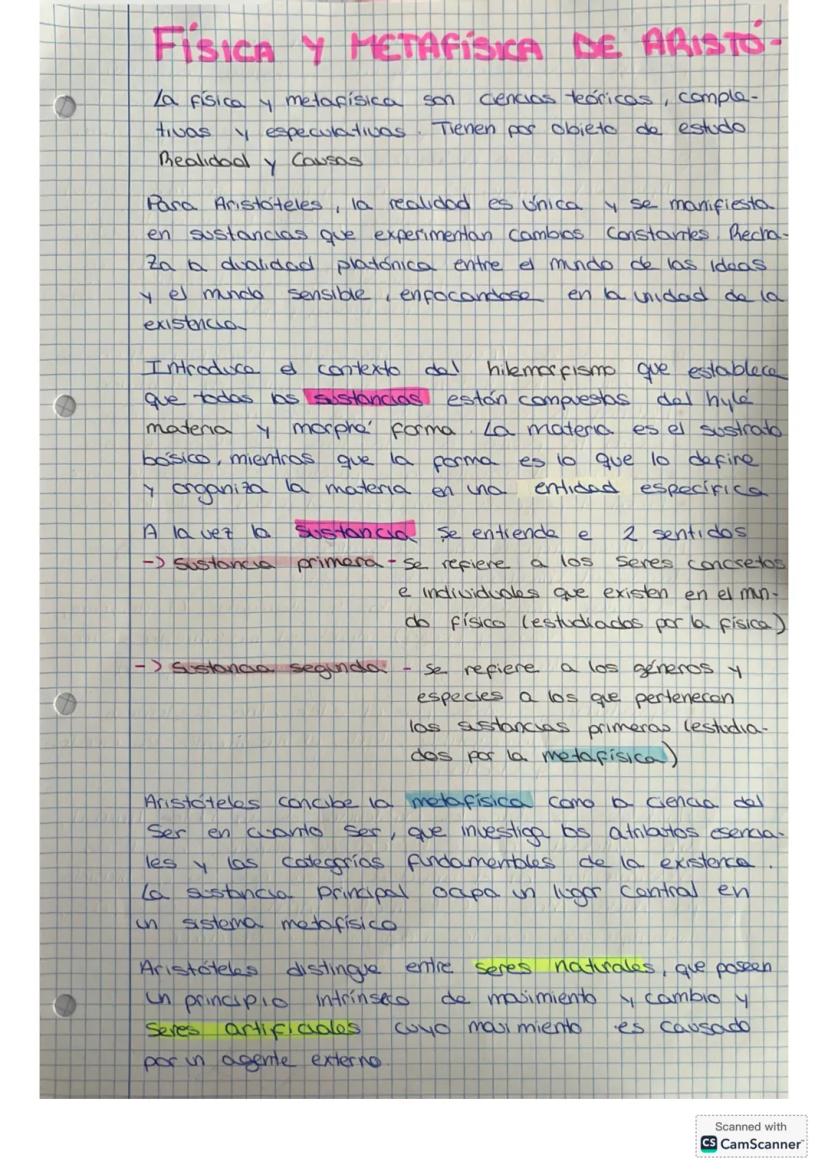 FÍSICA Y METAFÍSICA DE ARISTÓ-
La física y metafísica son ciencias teóricas, comple-
tivas y especulativas. Tienen por objeto de estudo
Realidad y Causas
Para Aristóteles, la realidad es única y se manifiesta
en sustancias que experimentan cambios constantes. Recha-
za la dualidad platónica entre el mundo de las ideas
y el mundo sensible, enfocandose en la unidad de la
existencia
Introduce el contexto del hilemorfismo que establece
que todas las sustancias están compuestas del hylé
materia y morphé forma. La materia es el sustrato
básico, mientras que la forma es lo que lo define
y organiza la materia en una entidad específica
A la vez la sustancia se entiende e 2 sentidos
-> Sustancia primera - se refiere a los seres concretos
e individuales que existen en el mun-
do físico (estudiados por la física)
-> Sustancia segunda - se refiere a los géneros y
especies a los que pertenecen
las sustancias primeras (estudia-
dos por la metafísica)
Aristóteles concibe la metafísica como la ciencia del
Ser en cuanto ser, que investiga los atributos esencia-
les y las categorías fundamentales de la existence.
La sustancia principal ocupa un lugar central en
un sistema metafísico
Aristóteles distingue entre seres naturales, que poseen
un principio intrínseco de movimiento y cambio y
seres artificiales cuyo movimiento es causado
por un agente externo.
Scanned with
CS CamScanner